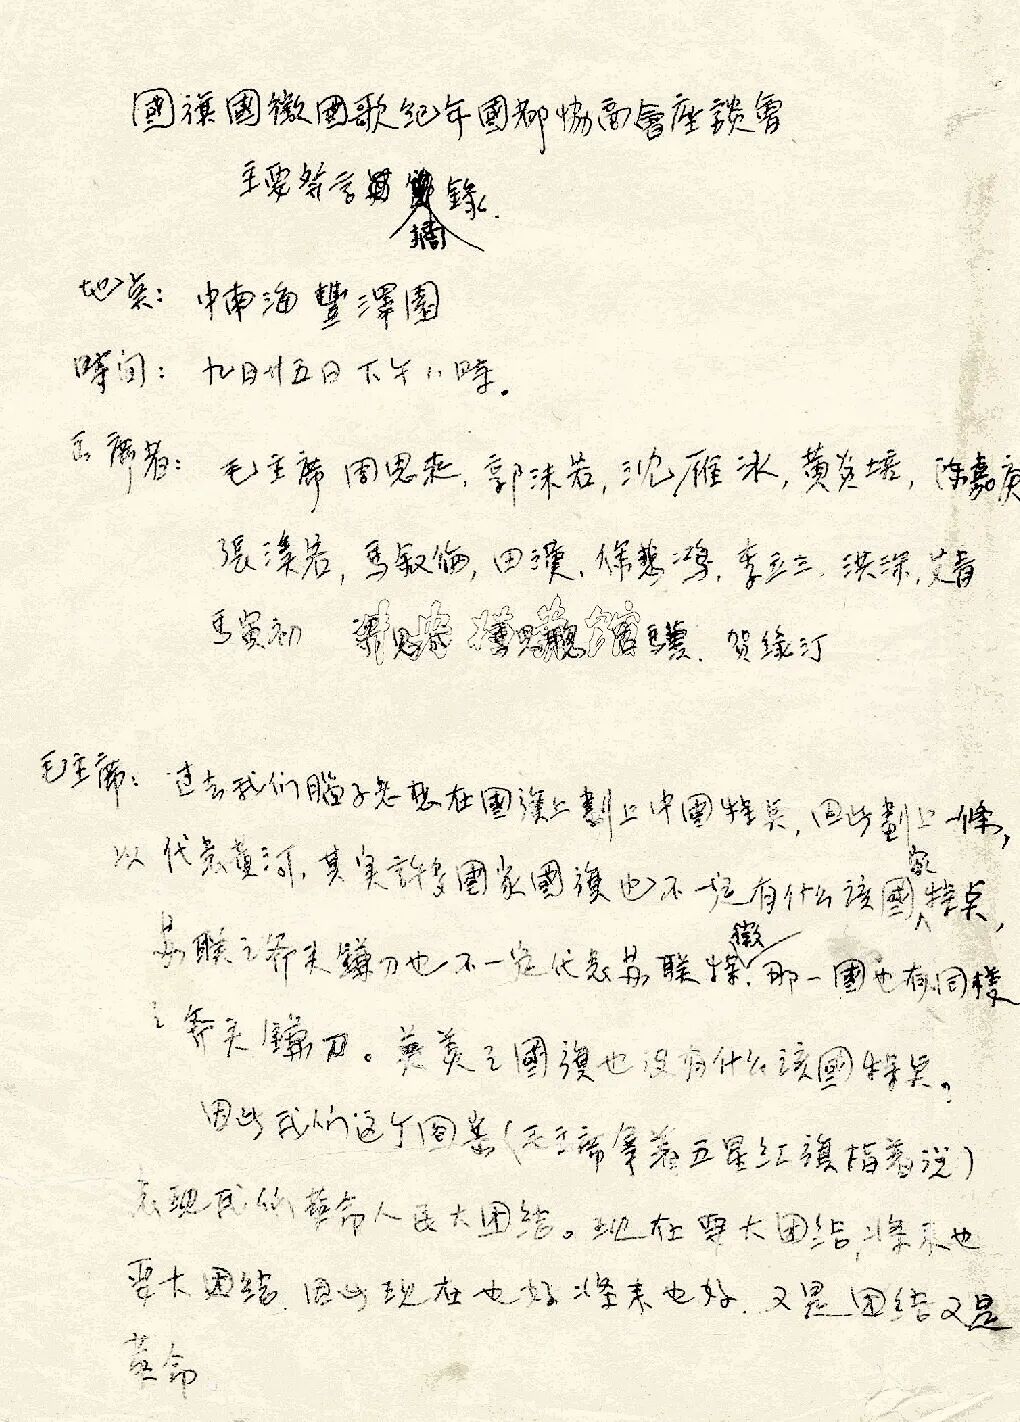 國旗國徽國歌紀年國都協商會座談會
主要發言摘錄.
地点: 中南海豐澤園
時间: 九月廿五日下午八時.
出席者: 毛主席 周恩来, 郭沫若, 沈雁冰, 黄炎培, 陈嘉庚
張奚若, 馬叙倫, 田漢, 徐悲鴻, 李立三, 洪深, 艾青
馬寅初 梁思成 馬 賀綠汀
毛主席: 过去我们腦子老想在國旗上劃上中國特点, 因此劃上一條,
以代表黄河, 其实許多國家國旗也不一定有什么該國家特点,
苏联之斧头鐮刀也不一定代表苏联特徵, 那一國也有同樣
之斧头鐮刀。英美之國旗也没有什么該國特点。
因此我们这个图案(毛主席拿着五星红旗指着说)
表现我们革命人民大团结。现在要大团结, 将来也
要大团结, 因此现在也好将来也好, 又是团结又是
革命